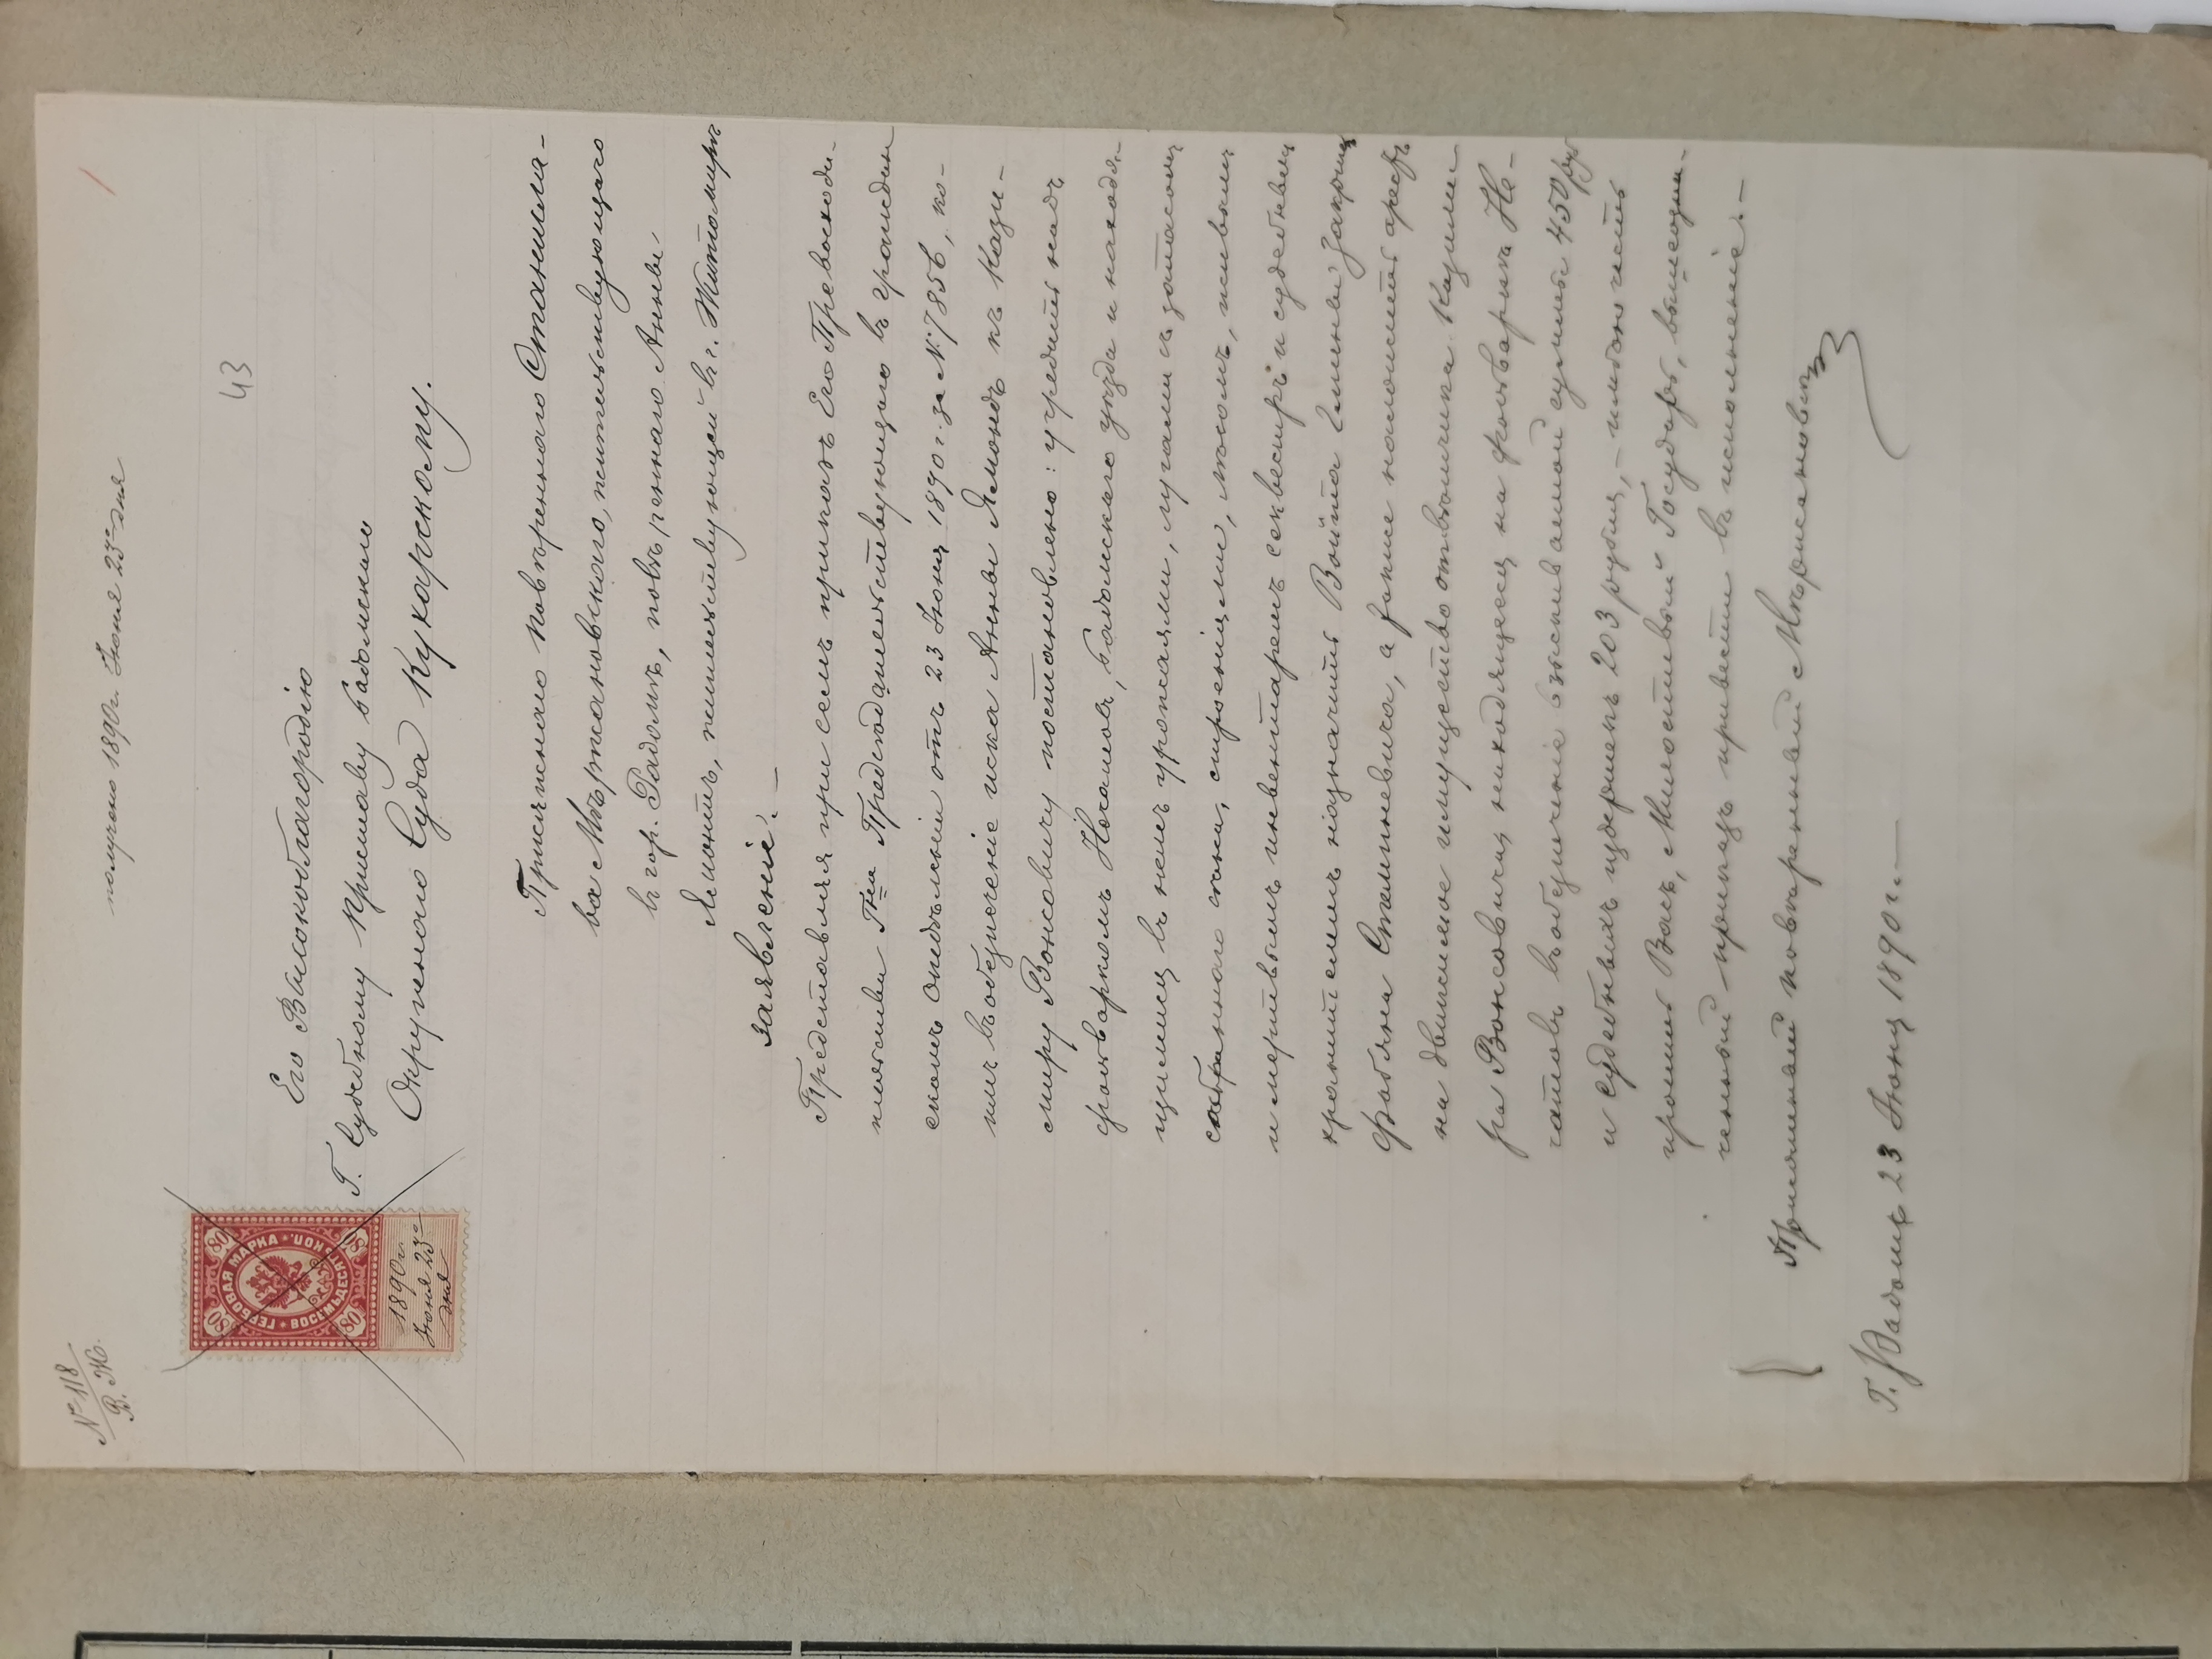 № 118
В. Ж.
получено 1890 г. Іюня 23го дня
43
ГЕРБОВАЯ МАРКА
ВОСЕМЬДЕСЯТЪ КОП.
80 80 80 80
1890 г.
Іюня 23го
дня
Его Высокоблагородію
Г. Судебному Приставу Радомскаго
Окружнаго Суда Кухарскому.
Присяжнаго повѣреннаго Станисла-
ва Мѣржановскаго, жительствующаго
въ гор. Радомѣ, повѣреннаго Анны
Ямонтъ, жительствующей въ г. Житомирѣ
заявленіе. —
Представляя при семъ приказъ Его Превосходи-
тельства Гна Предсѣдательствующаго въ граждан
скомъ Отдѣленіи отъ 23 Іюня 1890 г. за № 7856, ко-
имъ въ обезпеченіе иска Анны Ямонтъ къ Кази-
миру Вонсовичу постановлено: учредить надъ
фольваркомъ, Радомскаго уѣзда и находя-
щимися въ немъ урожаями, лугами съ запасомъ
собраннаго сѣна, строеніями, лѣсомъ, живымъ
и мертвымъ инвентаремъ секвестръ и судебнымъ
хранителемъ назначить Войта Гмины Закршов
Фабяна Сталиневича, а также наложить арестъ
на движимое имущество отвѣтчика Казими-
ра Вонсовича находящееся на фольваркѣ Но-
въ обезпеченіе взыскиваемой суммы 450 руб
и судебныхъ издержекъ 203 рубля, — имѣю честь
просить Васъ, Милостивый Государь, вышеозна-
ченный приказъ привести въ исполненіе. —
Присяжный повѣренный Мѣржановскій
Г. Радомъ 23 Іюня 1890 г. —